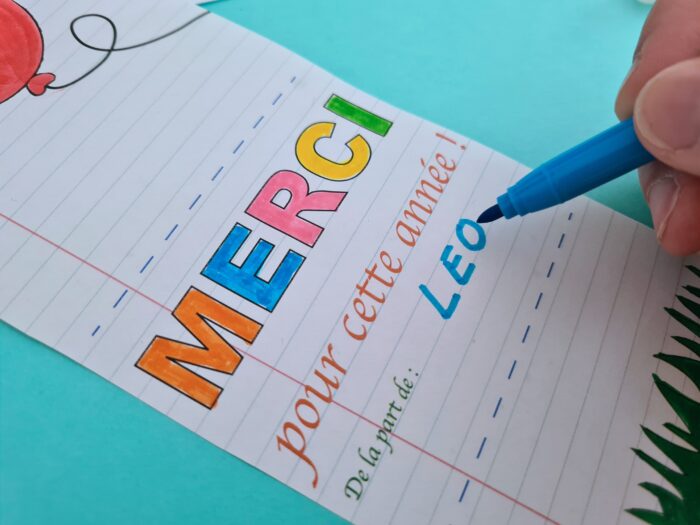 MERCI
pour cette année !
De la part de :
LEO